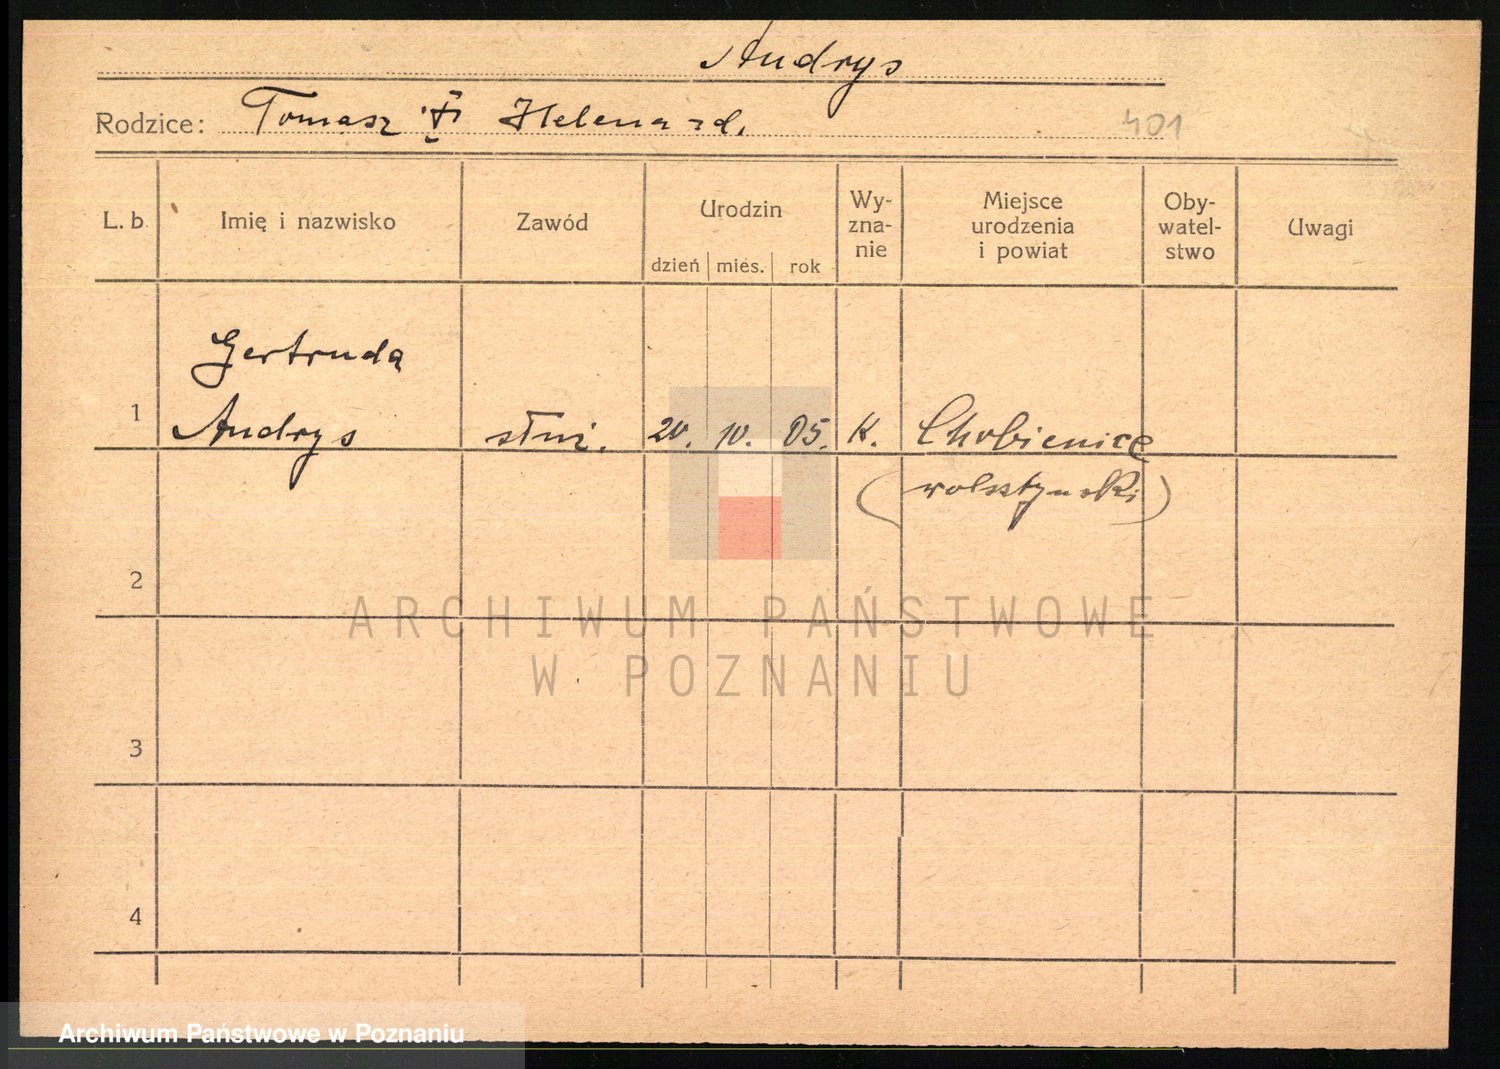 Andrys
Rodzice: Tomasz Helena zd.
401
L. b. Imię i nazwisko Zawód Urodzin dzień mies. rok Wy- zna- nie Miejsce urodzenia i powiat Oby- watel- stwo Uwagi
Gertruda
1 Andrys służ. 20. 10. 05. K. Chobienice
(wolsztyński)
2
ARCHIWUM PAŃSTWOWE
W POZNANIU
3
4
Archiwum Państwowe w Poznaniu